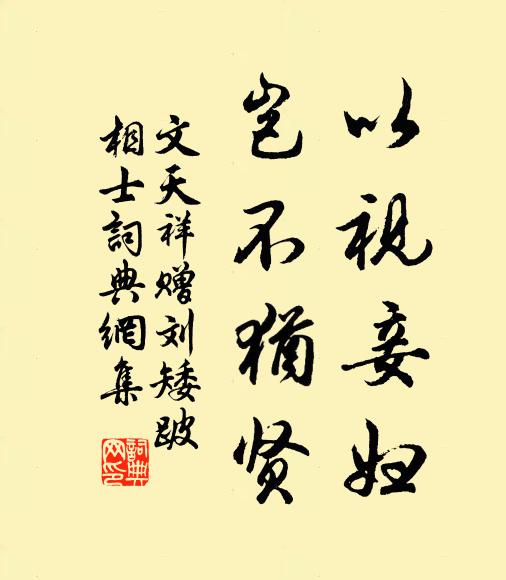 以视妾妇
岂不犹贤
文天祥赠刘矮跛
相士詞典網集
詞典
网印